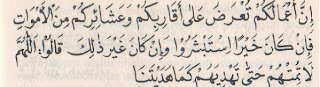 إِنَّ أَعْمَالَكُمْ تُعْرَضُ عَلَى أَقَارِبِكُمْ وَعَشَائِرِكُمْ مِنَ الْأَمْوَاتِ
فَإِنْ كَانَ خَيْرًا اسْتَبْشَرُوا وَإِنْ كَانَ غَيْرَ ذٰلِكَ قَالُوا: اَللّٰهُمَّ
لَا تُمِتْهُمْ حَتّٰى تَهْدِيَهُمْ كَمَا هَدَيْتَنَا